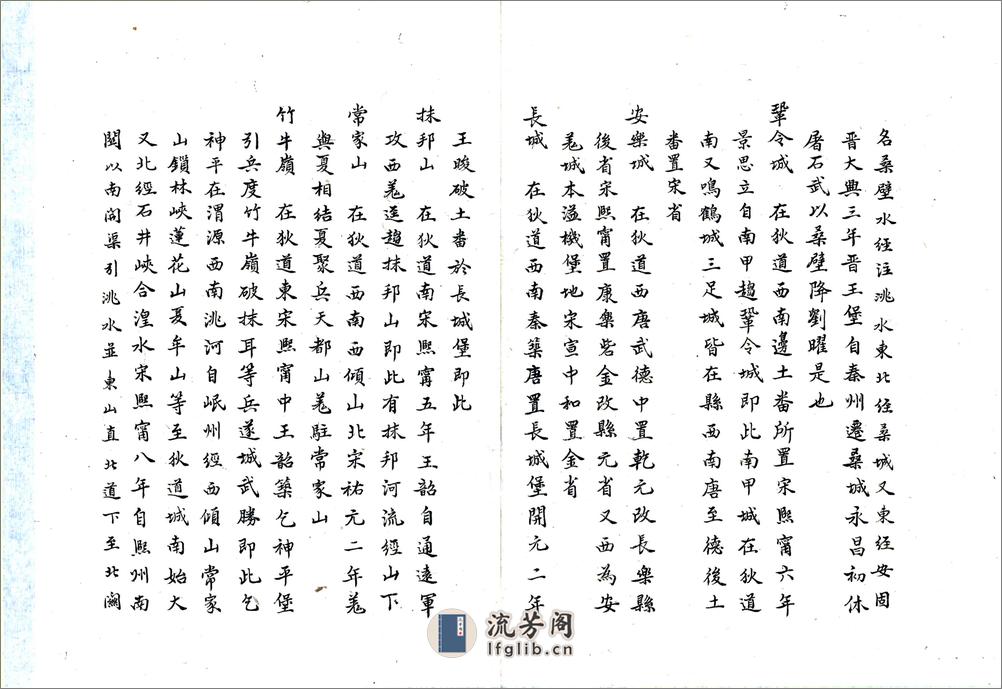 名桑壁水经注洮水東北经桑城又東经安固
晉大興三年晉王堡自秦州遷桑城永昌初休
屠石武以桑壁降劉曜是也
鞏令城　在狄道西南邊土番所置宋熙甯六年
景思立自南甲趨鞏令城即此南甲城在狄道
南又鳴鶴城三足城皆在縣西南唐至德後土
番置宋省
安樂城　在狄道西唐武德中置乾元改長樂縣
後省宋熙甯置康樂砦金改縣元省又西為安
羌城本溢機堡地宋宣中和置金省
長城　在狄道西南秦築唐置長城堡開元二年
王晙破土番於長城堡即此
抹邦山　在狄道南宋熙甯五年王韶自通遠軍
攻西羌逕趨抹邦山即此有抹邦河流經山下
常家山　在狄道西南西傾山北宋祐元二年羌
與夏相结夏聚兵天都山羌駐常家山
竹牛嶺　在狄道東宋熙甯中王韶築乞神平堡
引兵度竹牛嶺破抹耳等兵遂城武勝即此乞
神平在渭源西南洮河自岷州經西傾山常家
山鎖林峽蓮花山夏牟山等至狄道城南始大
又北經石井峽合湟水宋熙甯八年自熙州南
関以南開渠引洮水並東山直北道下至北闗
流芳阁
lfglib.cn